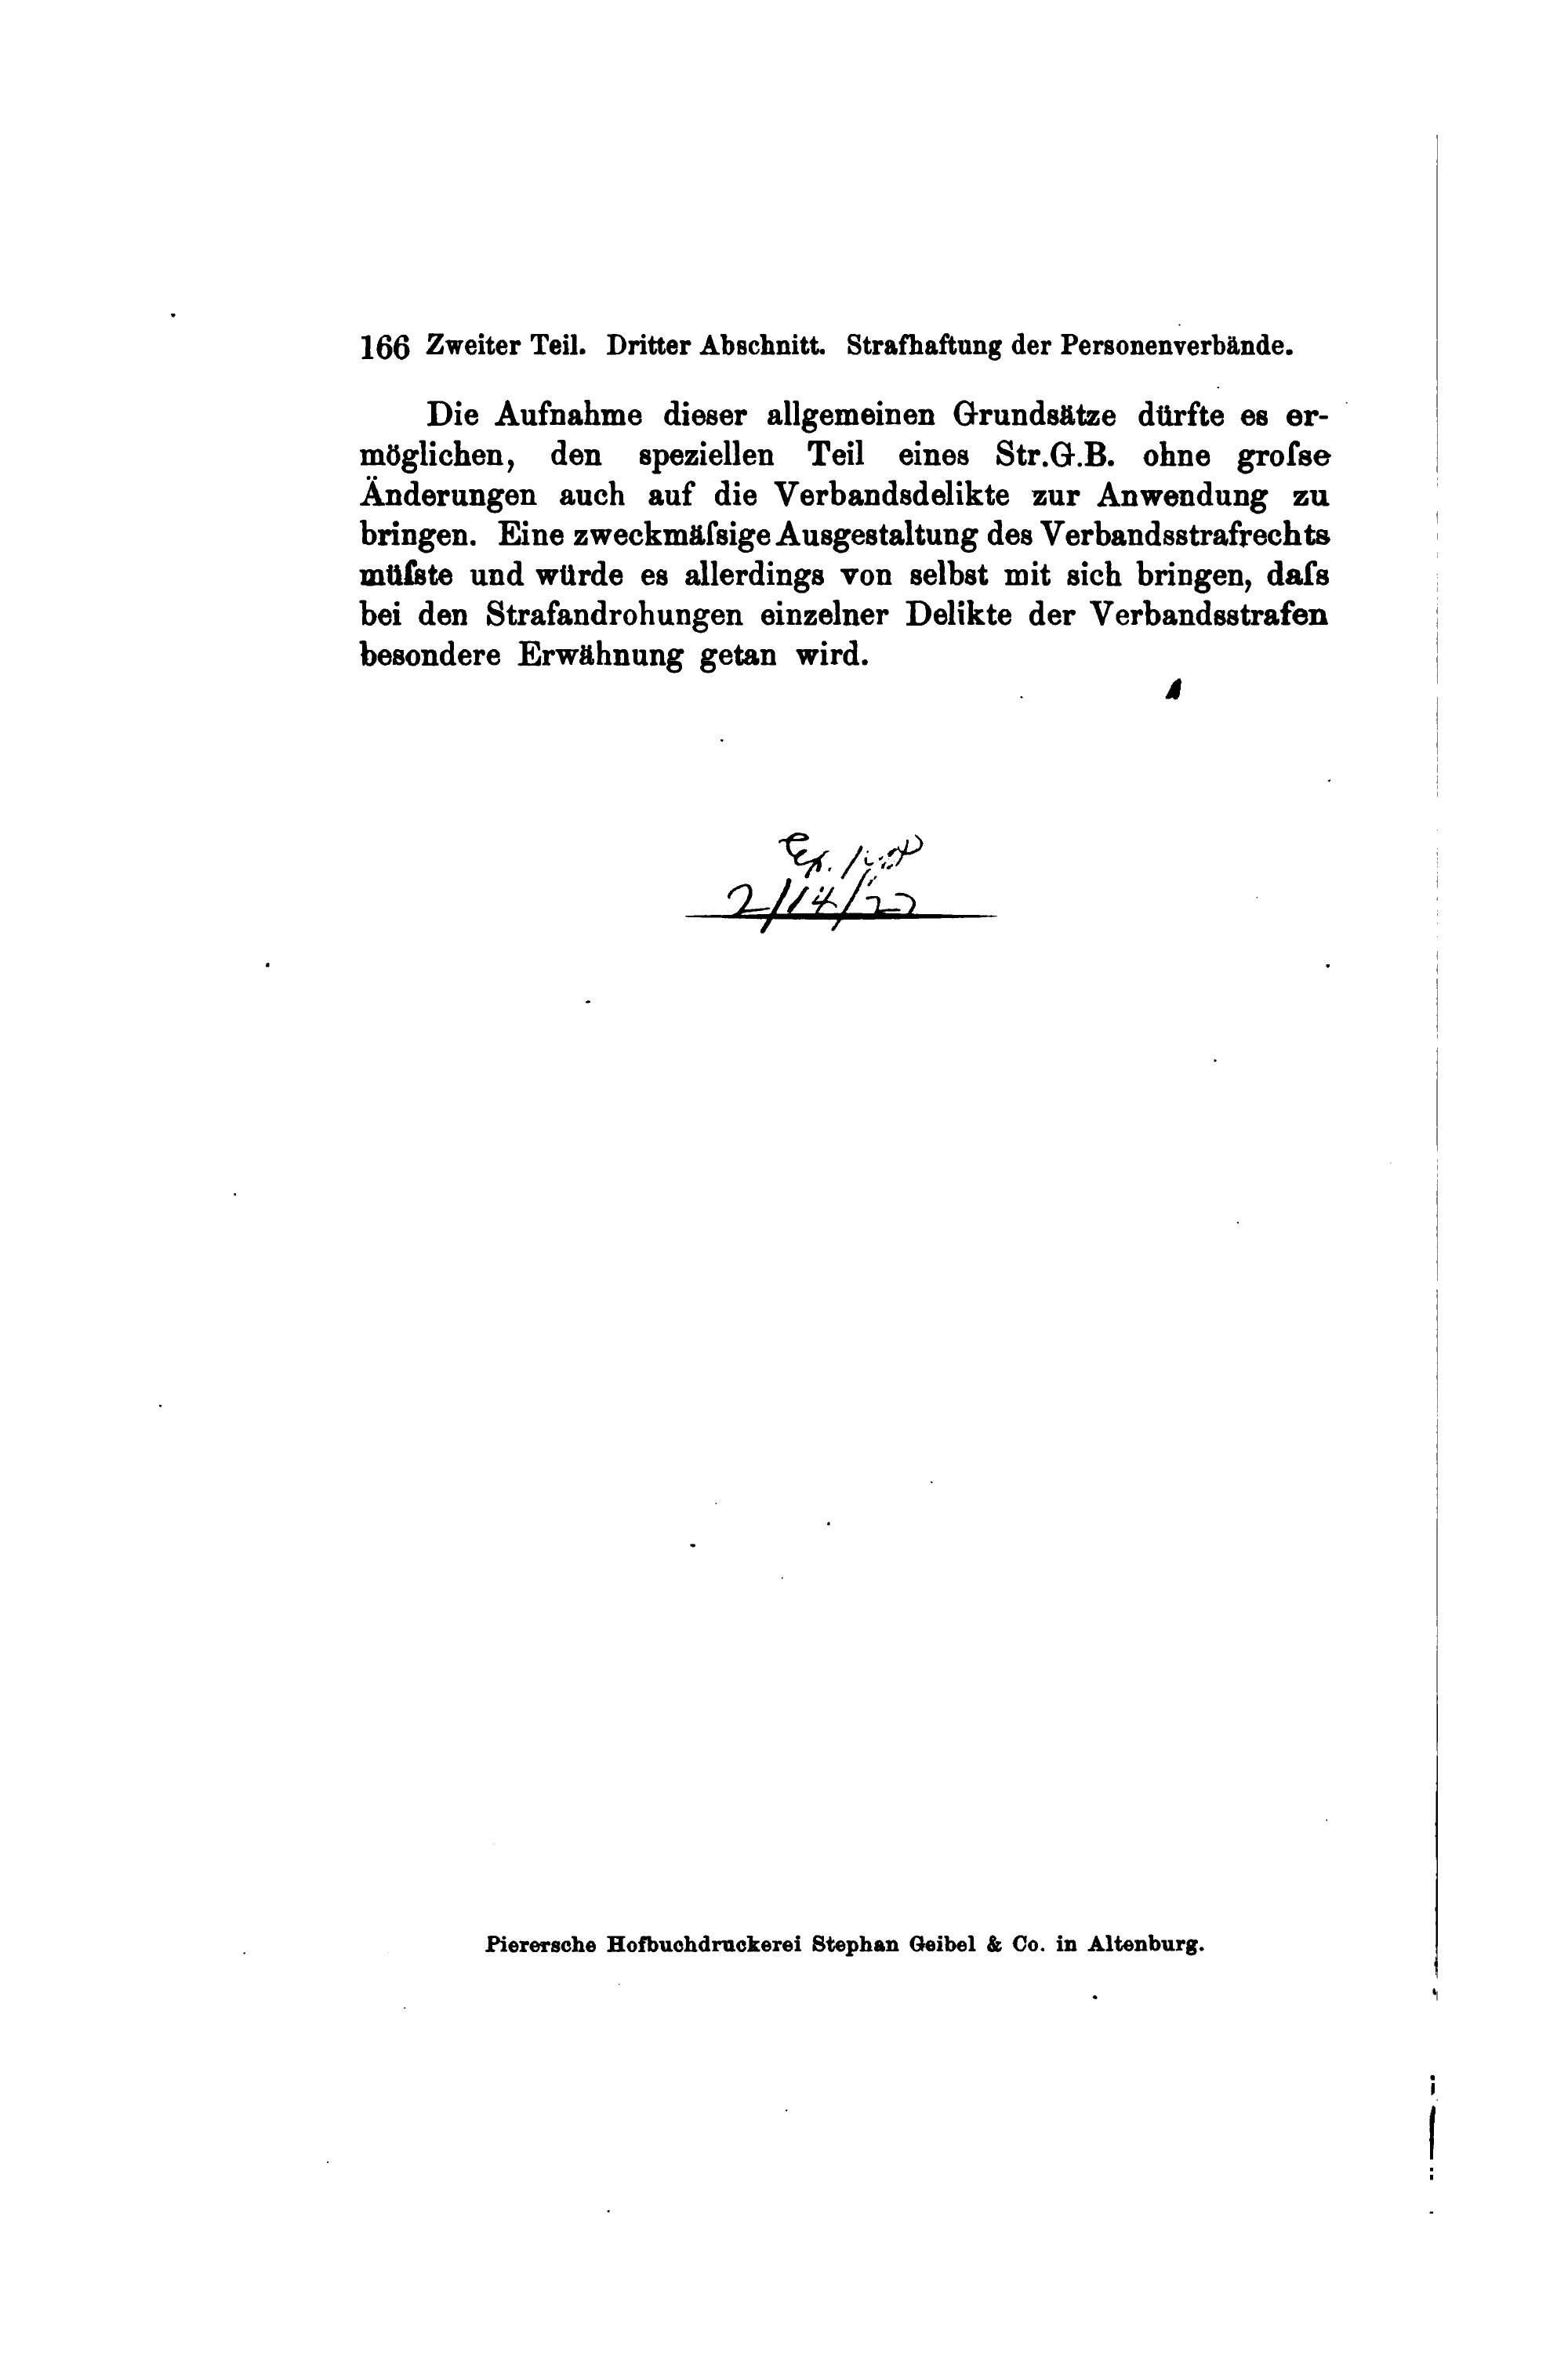 166 Zweiter Teil. Dritter Abschnitt. Strafhaftung der Personenverbände.
Die Aufnahme dieser allgemeinen Grundsätze dürfte es er-
möglichen, den speziellen Teil eines Str.G.B. ohne groſse
Änderungen auch auf die Verbandsdelikte zur Anwendung zu
bringen. Eine zweckmäſsige Ausgestaltung des Verbandsstrafrechts
müſste und würde es allerdings von selbst mit sich bringen, daſs
bei den Strafandrohungen einzelner Delikte der Verbandsstrafen
besondere Erwähnung getan wird.
2/14/22
Pierersche Hofbuchdruckerei Stephan Geibel & Co. in Altenburg.